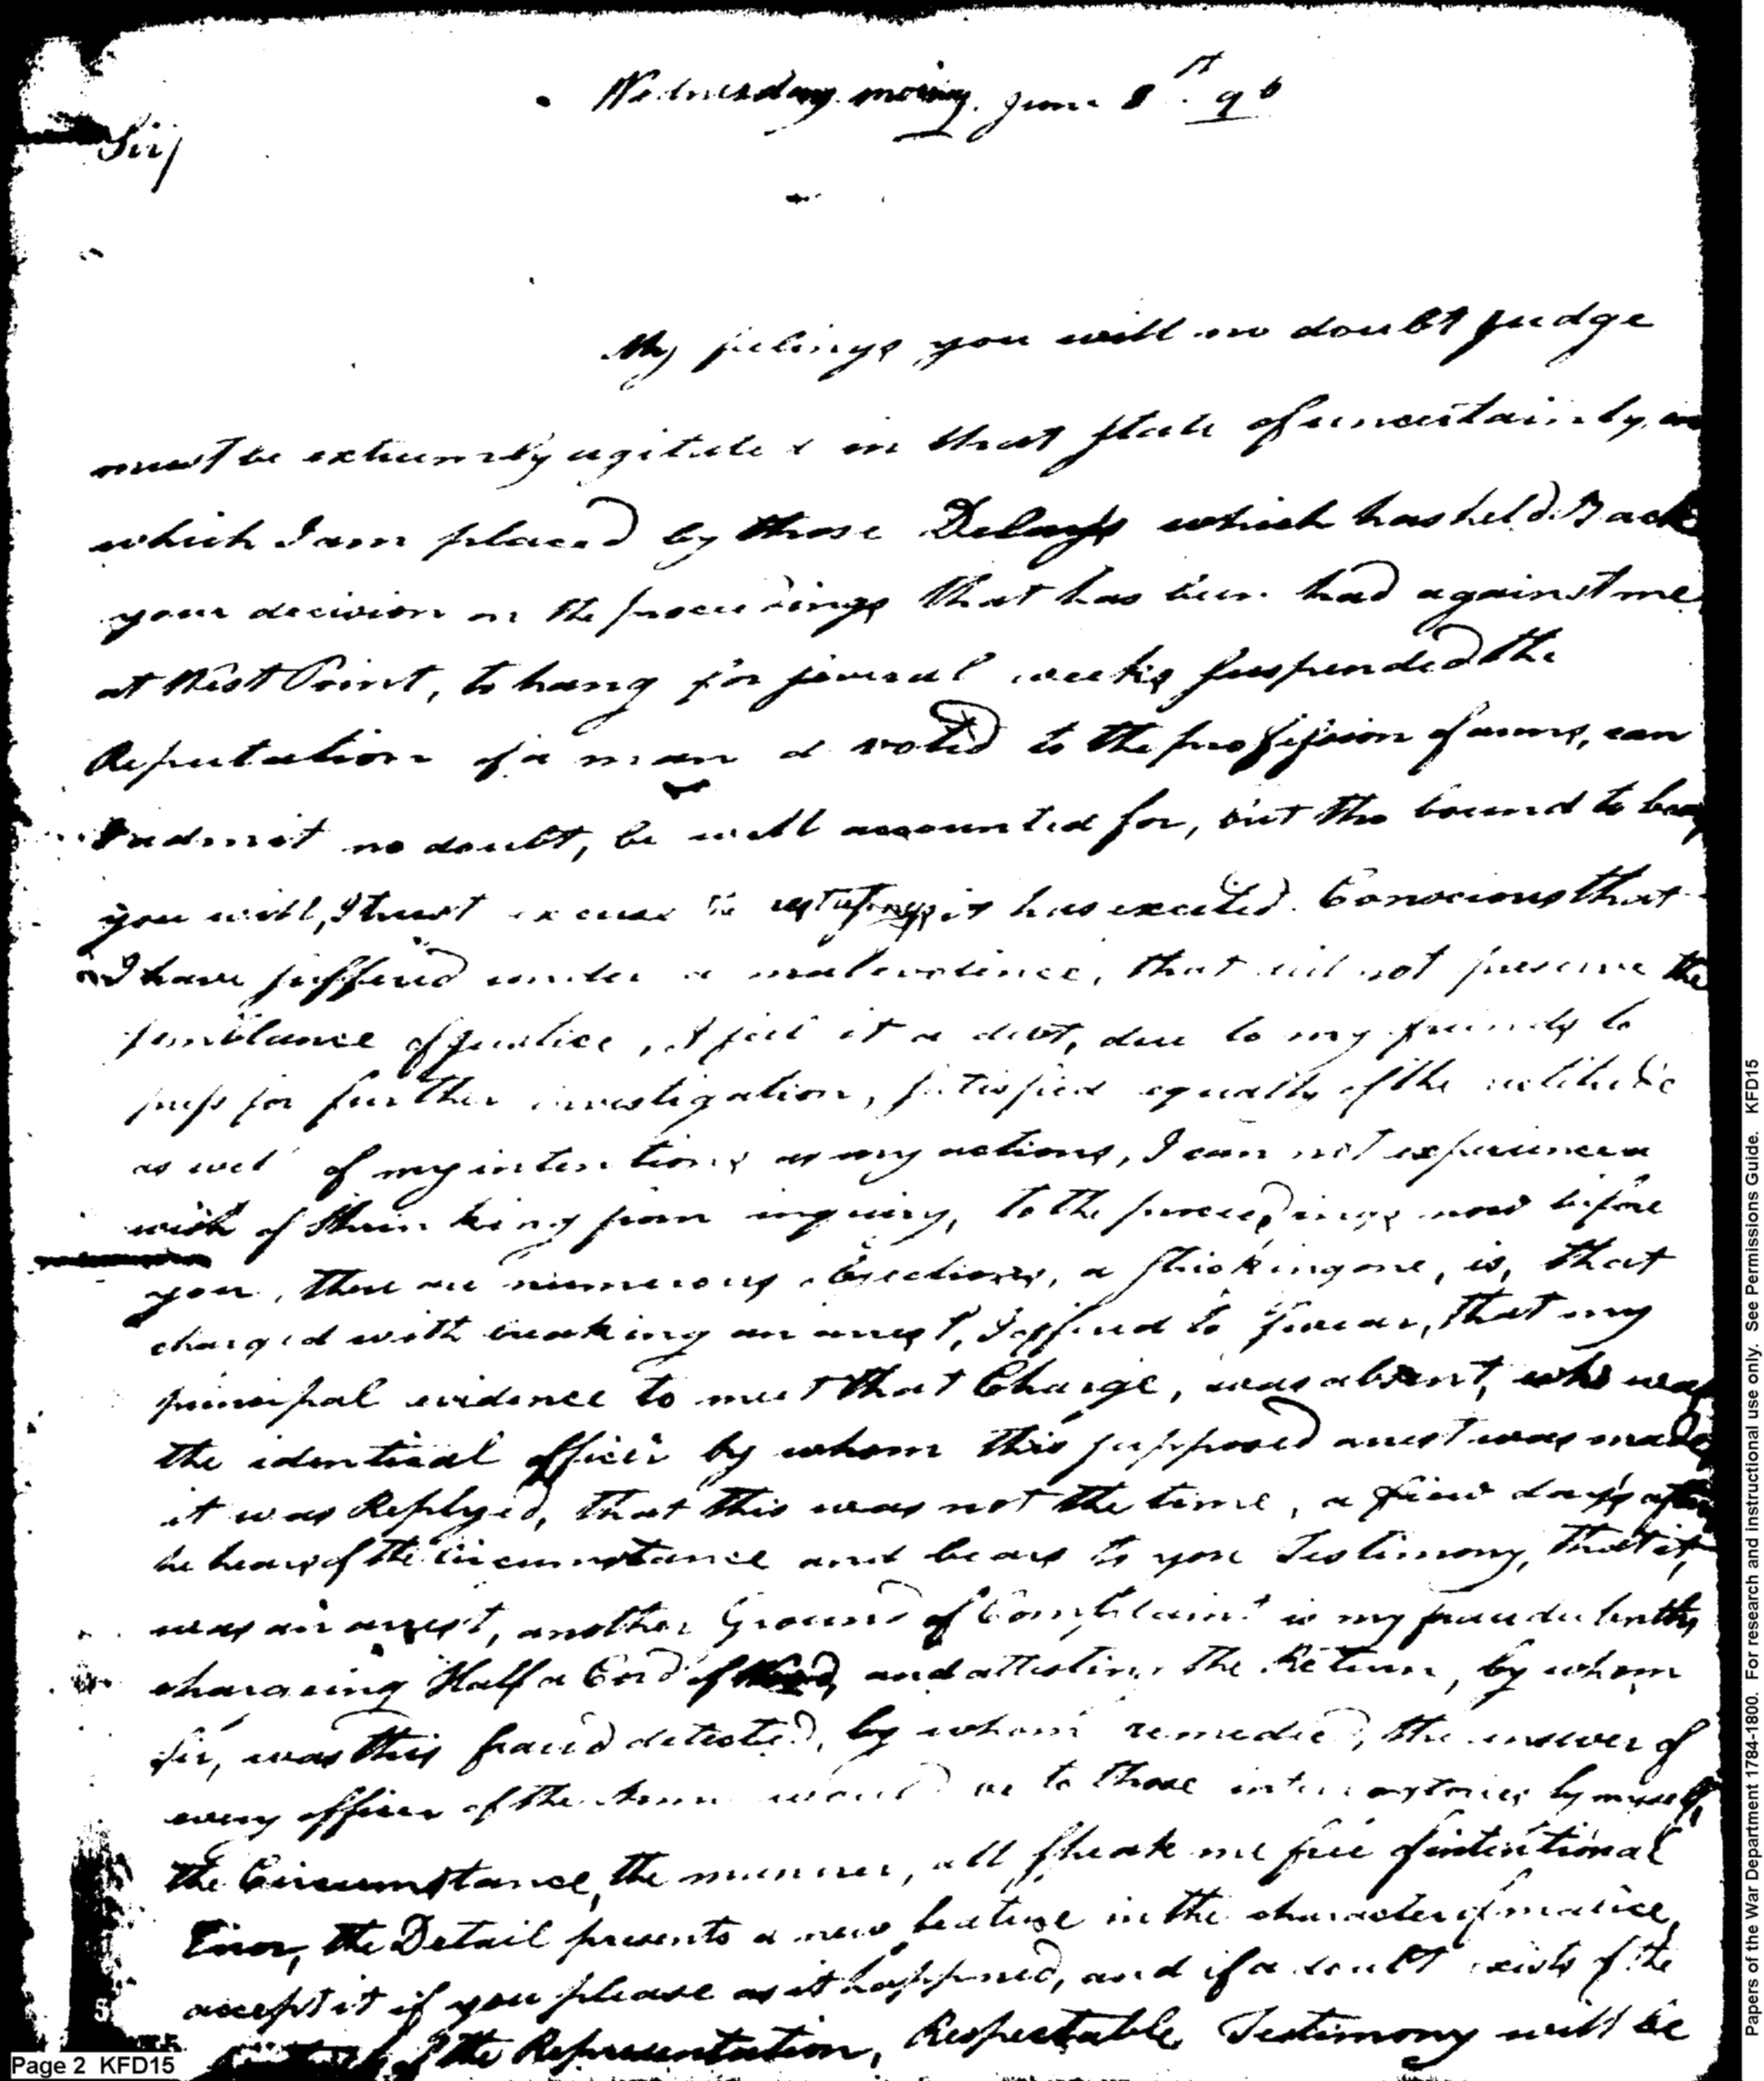 Wednesday morning. June 1st. 96
Sir/
My feelings you will no doubt judge
must be extreemly agitated in that state of uncertainty, in
which I am placed by those Delays which has held Back
your decision on the proceedings that has been had against me
at West Point, to hang for several weeks suspended the
Reputation of a man devoted to the profession of arms, can
I admit no doubt, be well accounted for, but tho bound to bear
you will, I trust excuse the it has excited. Conscious that
I have suffered under a malevolence, that did not preserve the
semblance of justice, I feel it a debt, due to my friends to
press for further investigation, satisfied equally of the rectitude
as well of my intentions as my actions, I can not experience a
wish of shrinking from inquiry, to the proceedings now before
you, there are numerous objections, a striking one, is, that
charged with breaking an arrest, I offered to swear, that my
principal evidence to meet that Charge, was absent, who was
the identical officer by whom this supposed arrest was made
it was Replyed, that this was not the time, a few days after
he hears of the Circumstance and bears to you Testimony, that it
was an arrest, another Ground of Complaint is my fraudulently
chargeing Half a Cord of Wood, and attesting the Return, by whom
Sir, was this fraud detected, by whom remedied, the answer of
every officer of the would be to those interrogatories by myself,
the Circumstance, the manner, all speak me free of intentional
Error, the Detail presents a new feature in the character of malice,
accept it if you please as it happened, and if a doubt exists of the
of the Representation, Respectable Testimony will be
Page 2 KFD15
Papers of the War Department 1784-1800. For research and instructional use only. See Permissions Guide. KFD15